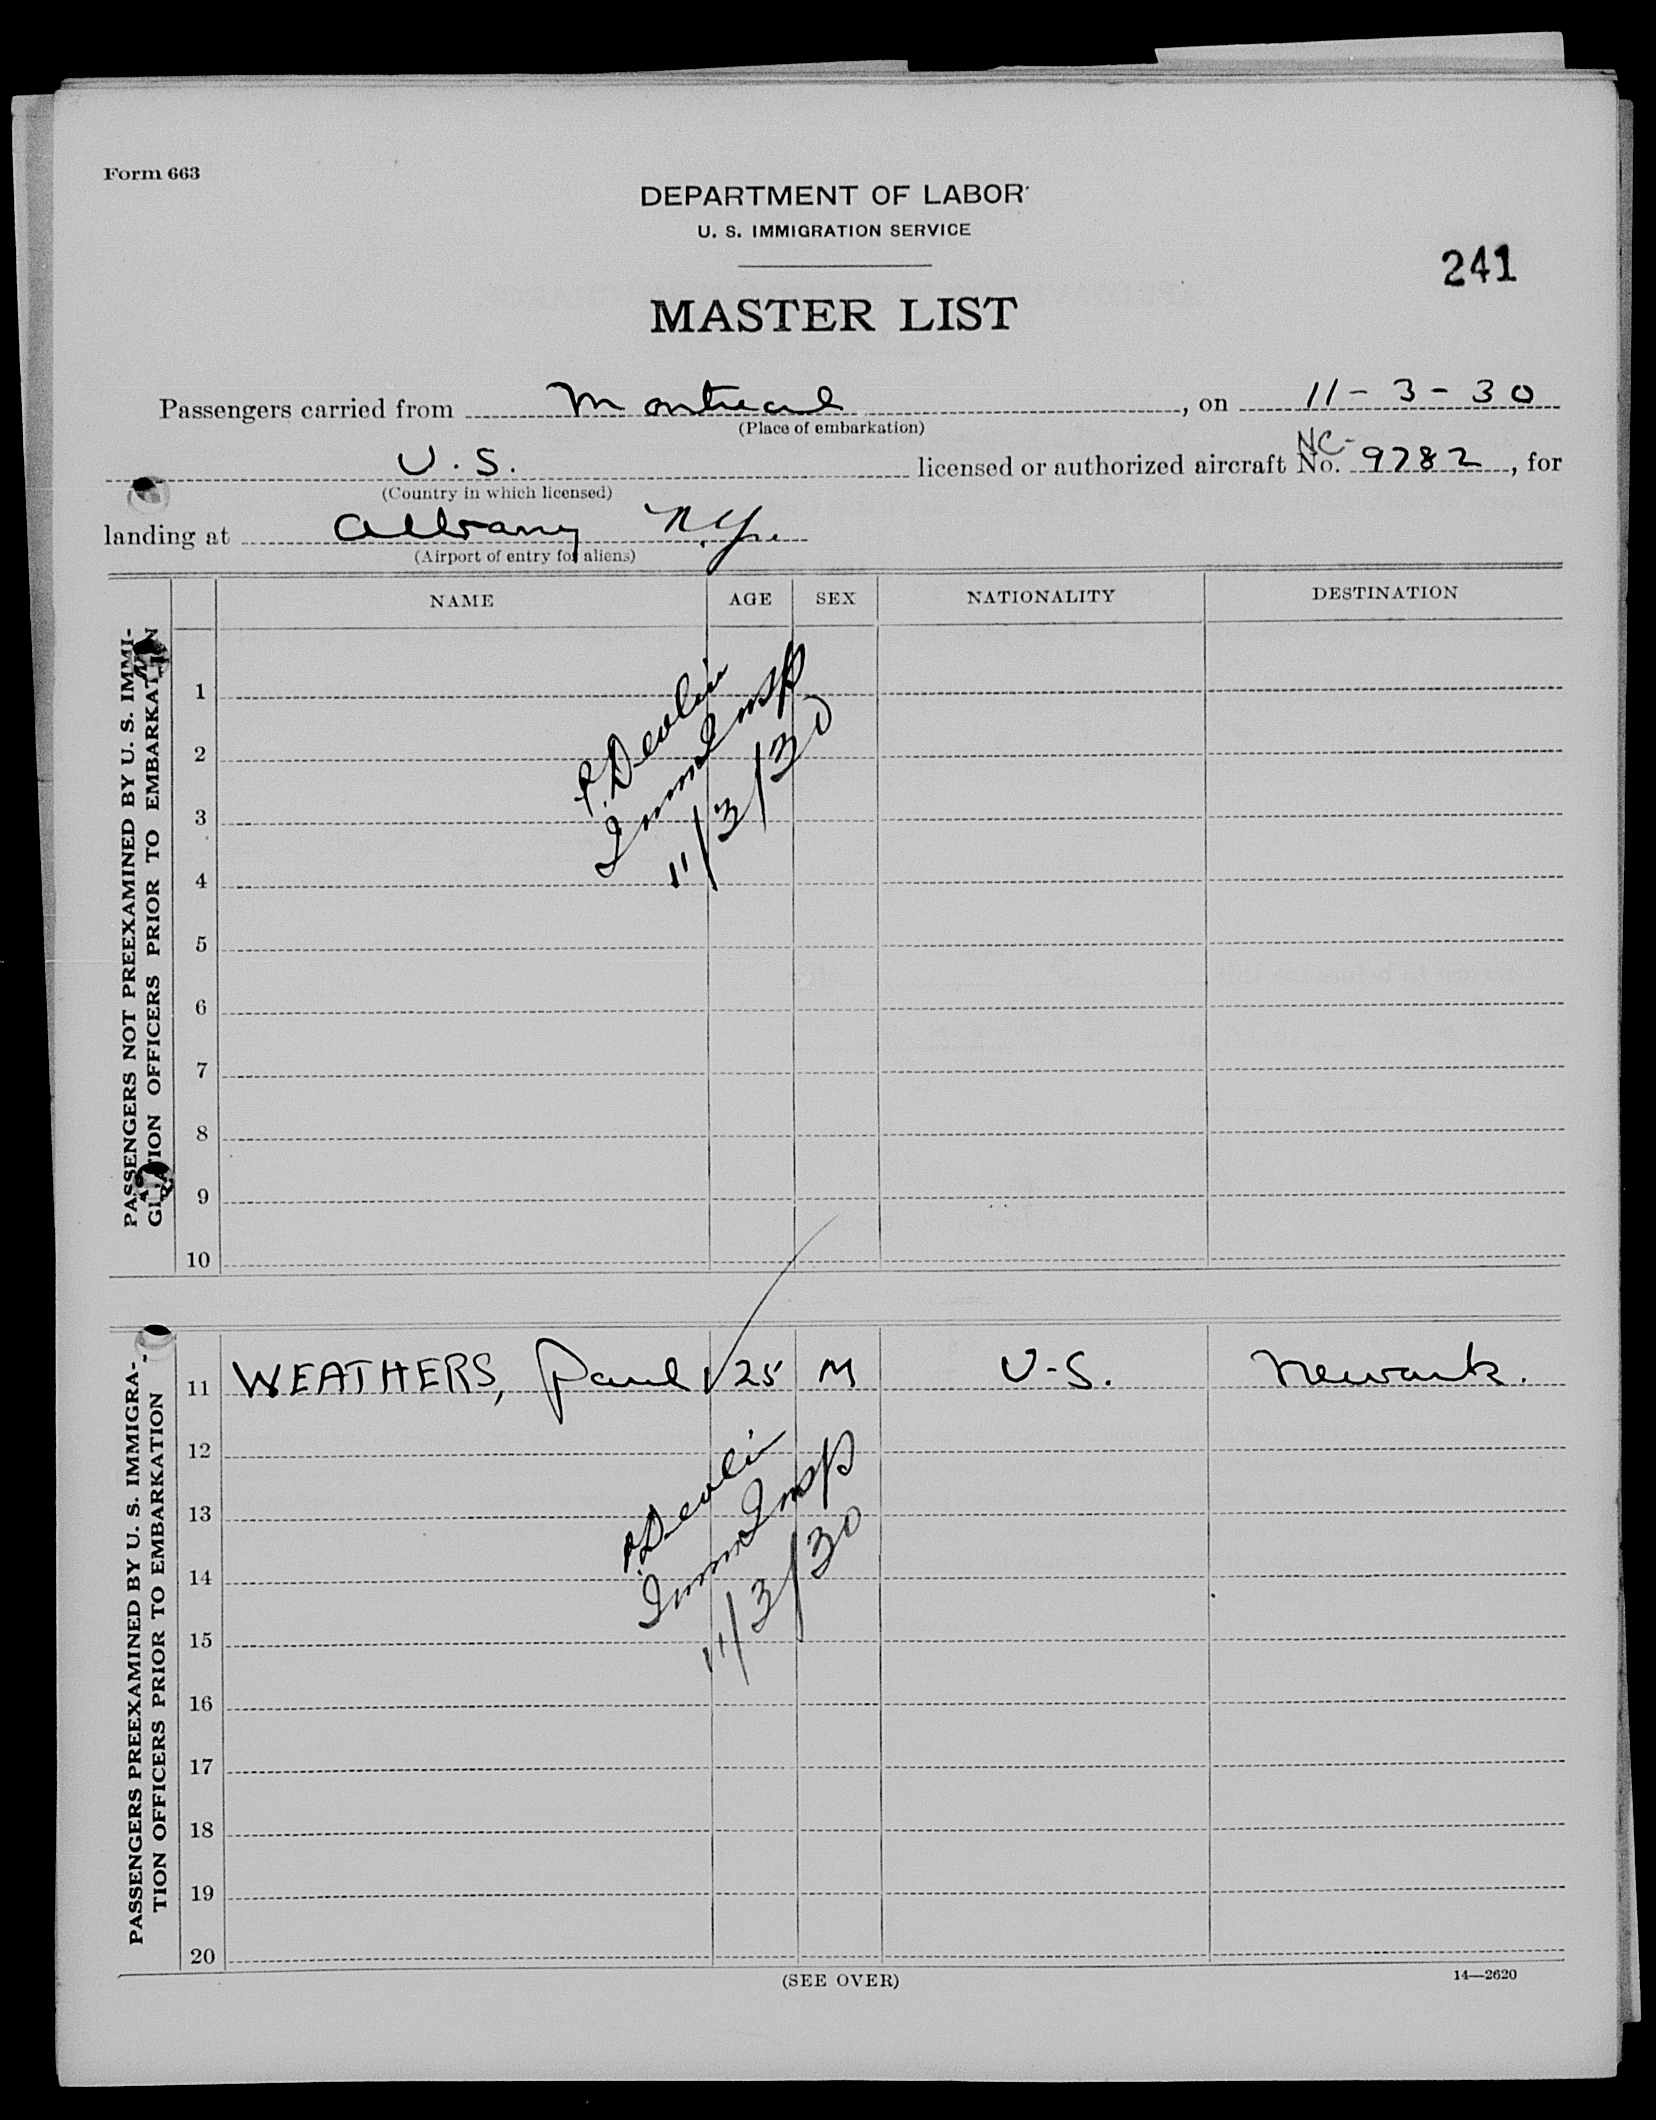 Form 663
DEPARTMENT OF LABOR
U. S. IMMIGRATION SERVICE
241
MASTER LIST
Passengers carried from Montreal, on 11-3-30
(Place of embarkation)
U.S. licensed or authorized aircraft No. NC-9782, for
(Country in which licensed)
landing at Albany N.Y.
(Airport of entry for aliens)
NAME AGE SEX NATIONALITY DESTINATION
PASSENGERS NOT PREEXAMINED BY U. S. IMMI-
GRATION OFFICERS PRIOR TO EMBARKATION
1
2
3
4
5
6
7
8
9
10
P. Devlin
Imm Insp
11/3/30
PASSENGERS PREEXAMINED BY U. S. IMMIGRA-
TION OFFICERS PRIOR TO EMBARKATION
11 WEATHERS, Paul √ 25 M U-S. Newark.
12
13
14
15
16
17
18
19
20
P. Devlin
Imm Insp
11/3/30
(SEE OVER)
14—2620